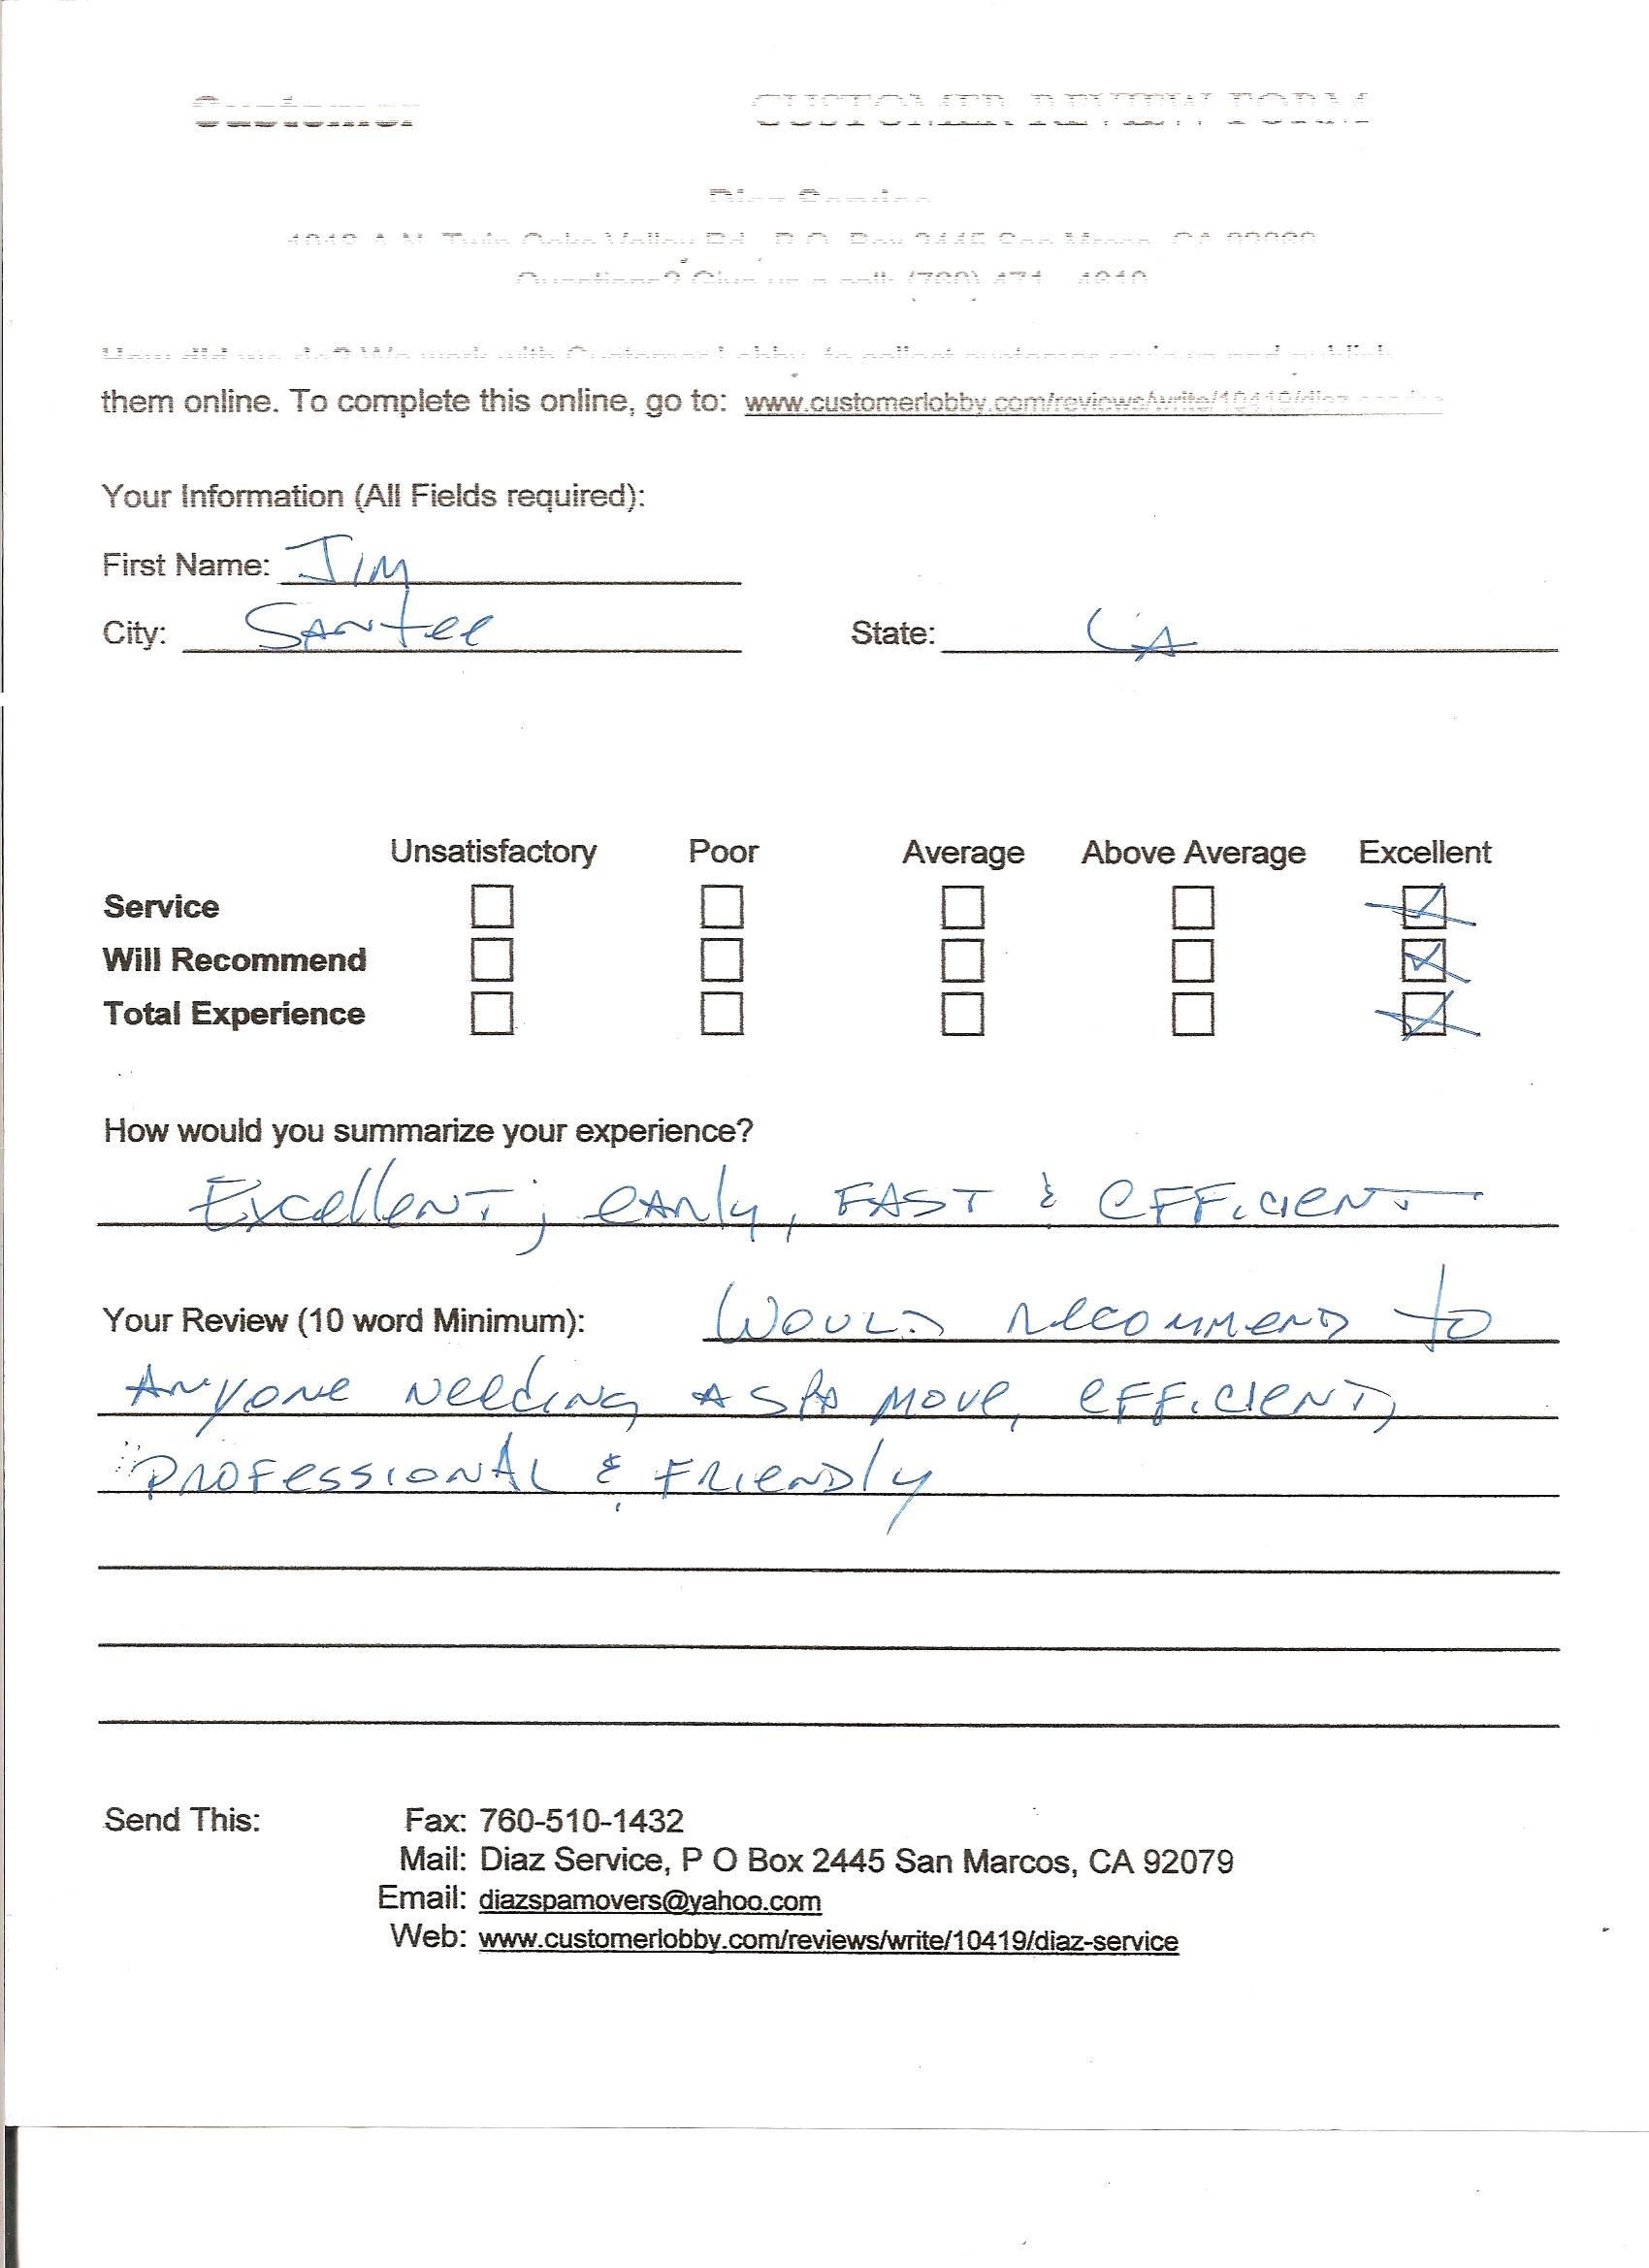 Customer CUSTOMER REVIEW FORM
Diaz Service
Questions? Give us a call: (760) 471 - 4810
How did we do? We work with Customer Lobby to collect customer reviews and publish
them online. To complete this online, go to: www.customerlobby.com/reviews/write/10419/diaz-service
Your Information (All Fields required):
First Name: JIM
City: SANtee State: CA
Unsatisfactory Poor Average Above Average Excellent
Service
Will Recommend
Total Experience
How would you summarize your experience?
Excellent; early, FAST & efficient
Your Review (10 word Minimum): Would recommend to
Anyone needing A SPA move, efficient,
Professional & Friendly
Send This: Fax: 760-510-1432
Mail: Diaz Service, P O Box 2445 San Marcos, CA 92079
Email: diazspamovers@yahoo.com
Web: www.customerlobby.com/reviews/write/10419/diaz-service